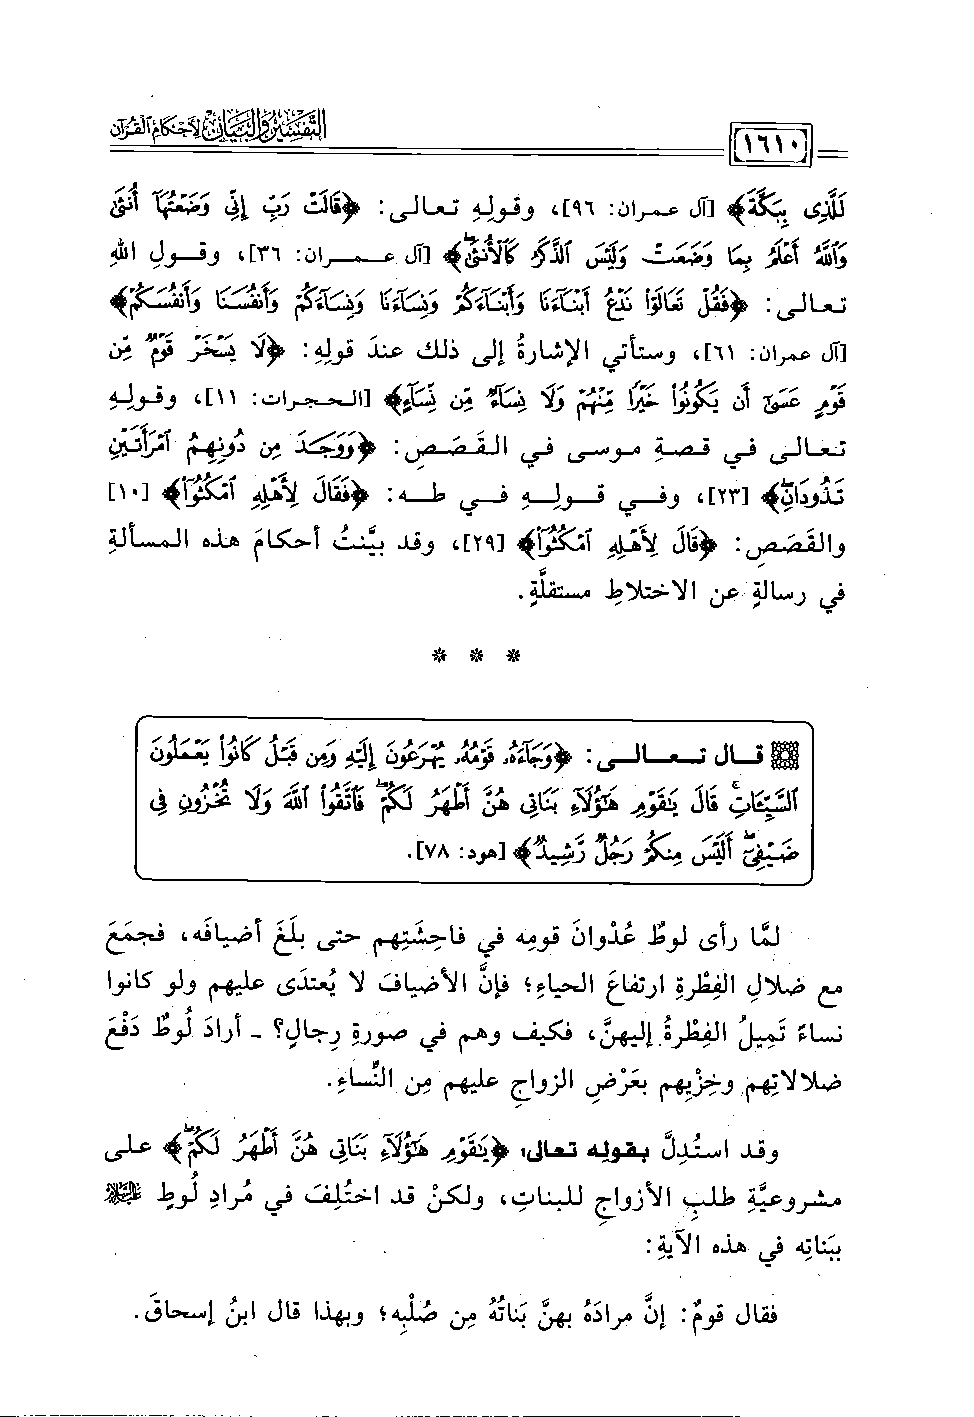 التفسير والبيان لأحكام القرآن
١٦١٠
لَلَّذِى بِبَكَّةَ﴾ [آل عمران: ٩٦]، وقولِهِ تعالى: ﴿قَالَتْ رَبِّ إِنِّى وَضَعْتُهَآ أُنثَىٰ
وَٱللَّهُ أَعْلَمُ بِمَا وَضَعَتْ وَلَيْسَ ٱلذَّكَرُ كَٱلْأُنثَىٰ﴾ [آل عمران: ٣٦]، وقولِ اللهِ
تعالى: ﴿فَقُلْ تَعَالَوْا۟ نَدْعُ أَبْنَآءَنَا وَأَبْنَآءَكُمْ وَنِسَآءَنَا وَنِسَآءَكُمْ وَأَنفُسَنَا وَأَنفُسَكُمْ﴾
[آل عمران: ٦١]، وستأتي الإشارةُ إلى ذلك عندَ قولِهِ: ﴿لَا يَسْخَرْ قَوْمٌ مِّن
قَوْمٍ عَسَىٰٓ أَن يَكُونُوا۟ خَيْرًا مِّنْهُمْ وَلَا نِسَآءٌ مِّن نِّسَآءٍ﴾ [الحجرات: ١١]، وقولِهِ
تعالى في قصةِ موسى في القَصَصِ: ﴿وَوَجَدَ مِن دُونِهِمُ ٱمْرَأَتَيْنِ
تَذُودَانِ﴾ [٢٣]، وفي قولِهِ في طه: ﴿فَقَالَ لِأَهْلِهِ ٱمْكُثُوٓا۟﴾ [١٠]
والقَصَصِ: ﴿قَالَ لِأَهْلِهِ ٱمْكُثُوٓا۟﴾ [٢٩]، وقد بيَّنتُ أحكامَ هذه المسألةِ
في رسالةٍ عن الاختلاطِ مستقلَّةٍ.
* * *
قال تعالى: ﴿وَجَآءَهُۥ قَوْمُهُۥ يُهْرَعُونَ إِلَيْهِ وَمِن قَبْلُ كَانُوا۟ يَعْمَلُونَ
ٱلسَّيِّـَٔاتِ ۚ قَالَ يَـٰقَوْمِ هَـٰٓؤُلَآءِ بَنَاتِى هُنَّ أَطْهَرُ لَكُمْ ۖ فَٱتَّقُوا۟ ٱللَّهَ وَلَا تُخْزُونِ فِى
ضَيْفِىٓ ۖ أَلَيْسَ مِنكُمْ رَجُلٌ رَّشِيدٌ﴾ [هود: ٧٨].
لمَّا رأى لوطٌ عُدْوانَ قومِه في فاحِشَتِهم حتى بلَغَ أضيافَه، فجمَعَ
مع ضلالِ الفِطْرةِ ارتفاعَ الحياءِ؛ فإنَّ الأضيافَ لا يُعتدَى عليهم ولو كانوا
نساءً تَمِيلُ الفِطْرةُ إليهنَّ، فكيف وهم في صورةِ رِجالٍ؟ ـ أرادَ لُوطٌ دَفْعَ
ضلالاتِهم وخِزْيِهم بعَرْضِ الزواجِ عليهم مِن النِّساءِ.
وقد استُدِلَّ بقوله تعالى: ﴿يَـٰقَوْمِ هَـٰٓؤُلَآءِ بَنَاتِى هُنَّ أَطْهَرُ لَكُمْ ۖ﴾ على
مشروعيَّةِ طلبِ الأزواجِ للبناتِ، ولكنْ قد اختُلِفَ في مُرادِ لُوطٍ عليه السلام
ببَناتِه في هذه الآيةِ:
فقال قومٌ: إنَّ مرادَهُ بهنَّ بَناتُهُ مِن صُلْبِه؛ وبهذا قال ابنُ إسحاقَ.